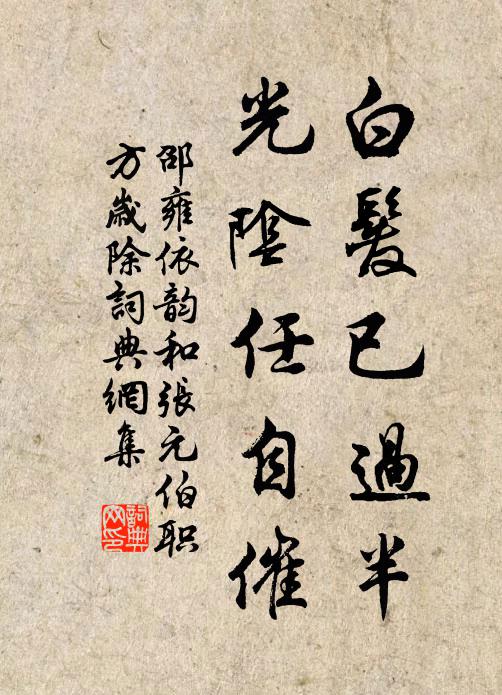 白髮已過半
光陰任自催
邵雍依韵和張元伯职
方歲除詞典網集
詞典
网印